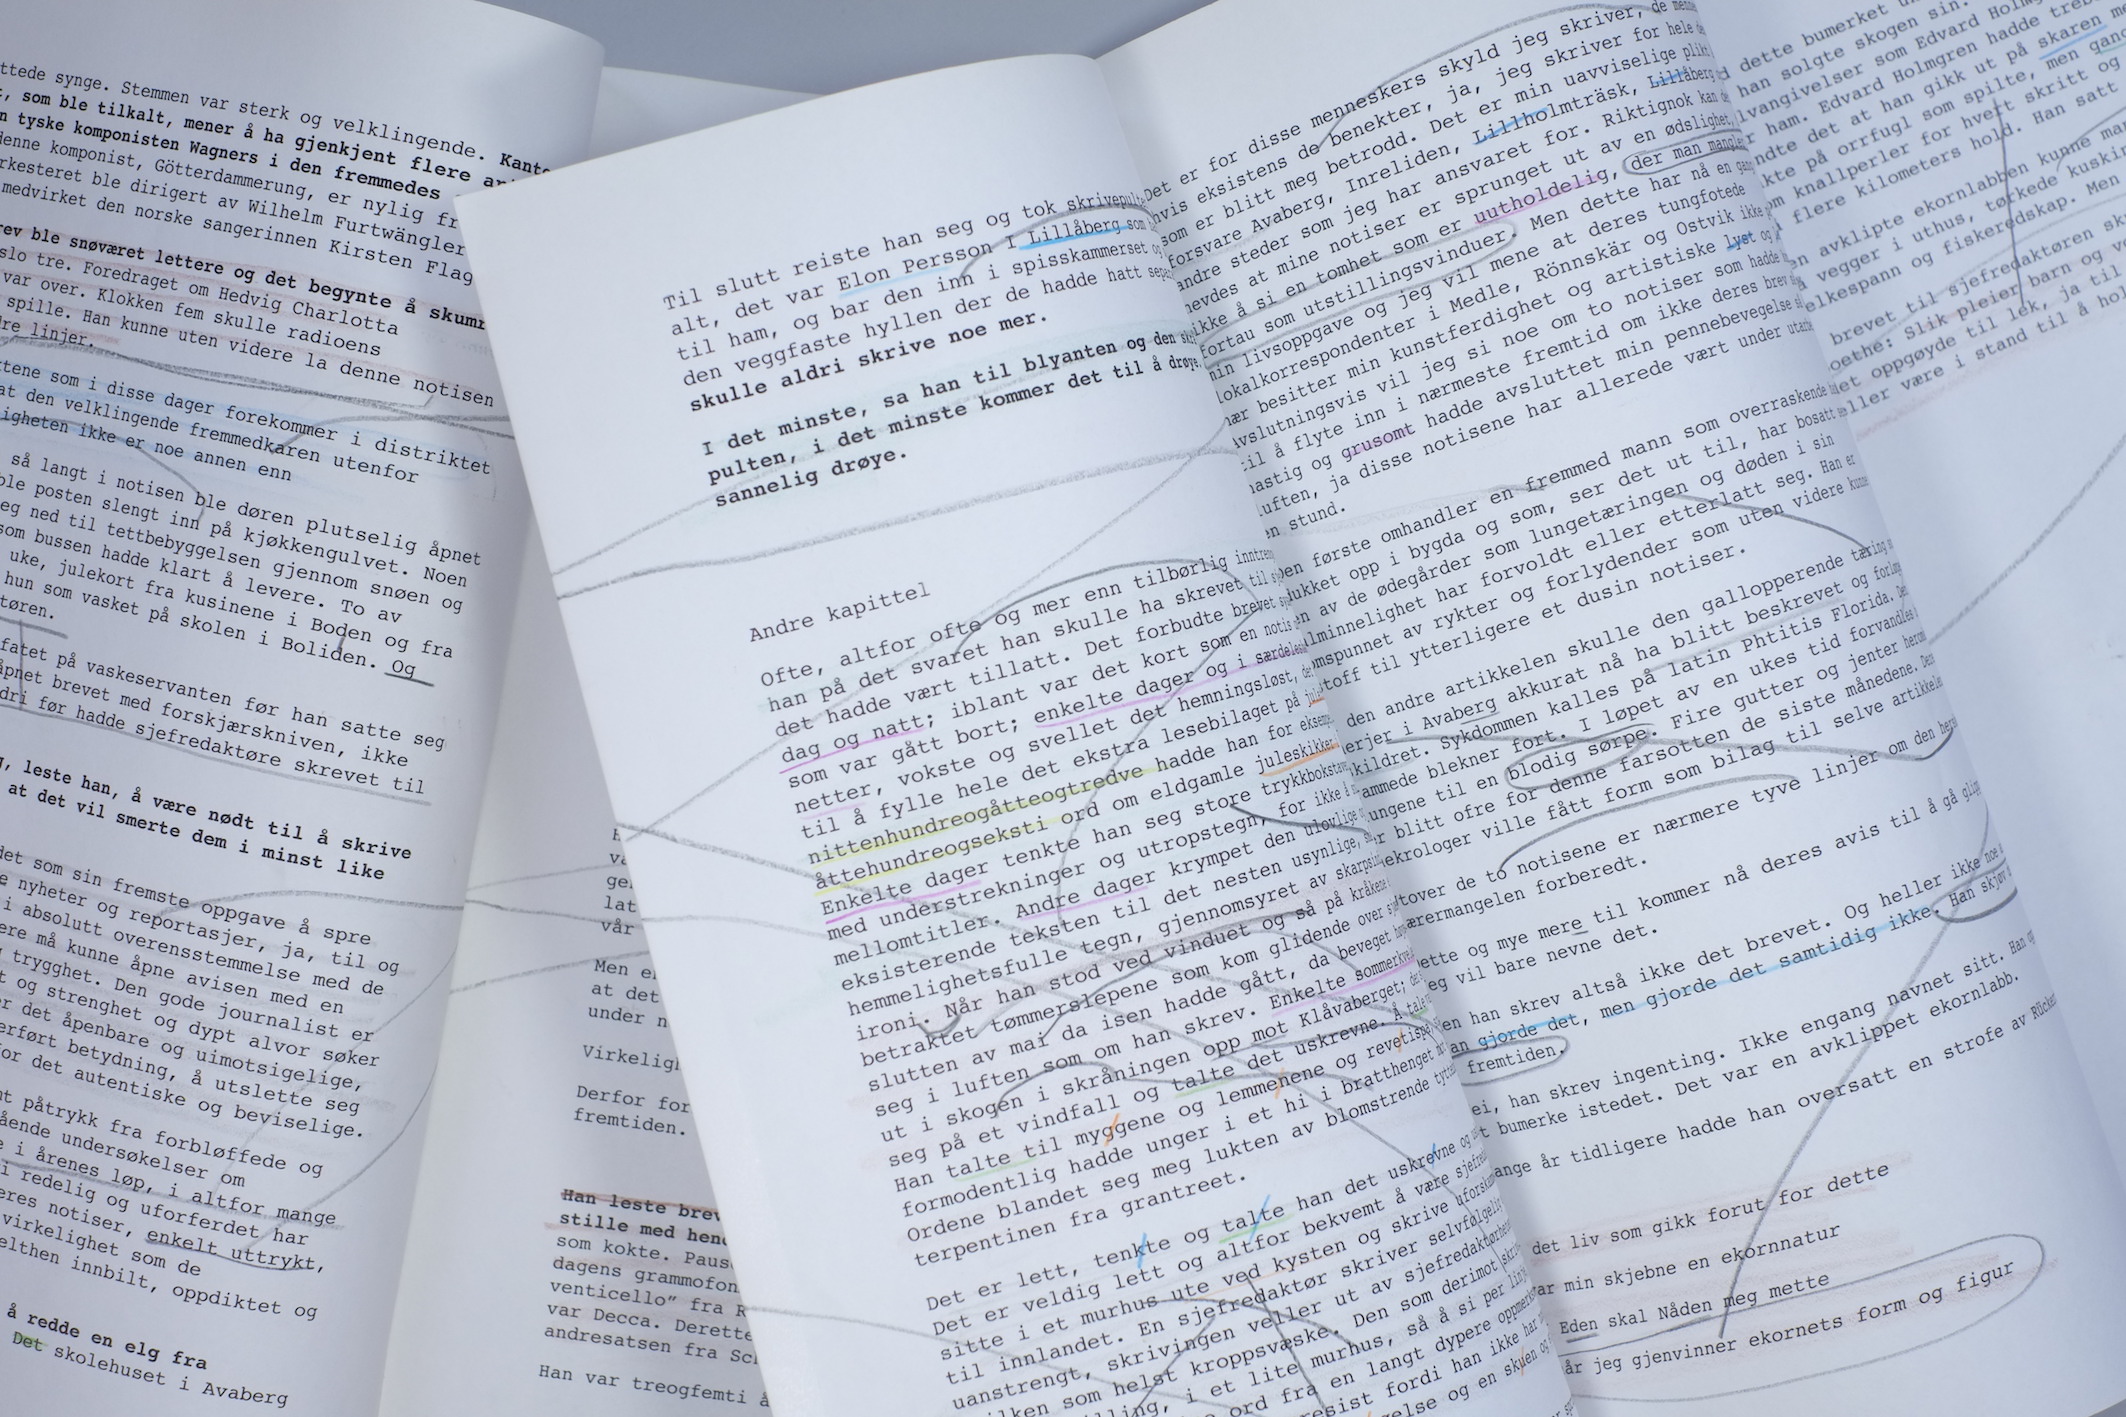 ttede synge. Stemmen var sterk og velklingende. Kanto
, som ble tilkalt, mener å ha gjenkjent flere
n tyske komponisten Wagners i den fremmedes
denne komponist, Götterdammerung, er nylig
rkesteret ble dirigert av Wilhelm Furtwängler
medvirket den norske sangerinnen Kirsten Flag
rev ble snøværet lettere og det begynte å skumr
slo tre. Foredraget om Hedvig Charlotta
var over. Klokken fem skulle radioens
spille. Han kunne uten videre la denne notisen
dre linjer.
ktene som i disse dager forekommer i distriktet
at den velklingende fremmedkaren utenfor
ligheten ikke er noe annen enn
så langt i notisen ble døren plutselig åpnet
ble posten slengt inn på kjøkkengulvet. Noen
eg ned til tettbebyggelsen gjennom snøen og
som bussen hadde klart å levere. To av
uke, julekort fra kusinene i Boden og fra
hun som vasket på skolen i Boliden. Og
tøren.
fatet på vaskeservanten før han satte seg
åpnet brevet med forskjærskniven, ikke
dri før hadde sjefredaktøre skrevet til
, leste han, å være nødt til å skrive
at det vil smerte dem i minst like
det som sin fremste oppgave å spre
e nyheter og reportasjer, ja, til og
i absolutt overensstemmelse med de
ere må kunne åpne avisen med en
trygghet. Den gode journalist er
t og strenghet og dypt alvor søker
er det åpenbare og uimotsigelige,
erført betydning, å utslette seg
for det autentiske og beviselige.
nt påtrykk fra forbløffede og
ående undersøkelser om
e i årenes løp, i altfor mange
i redelig og uforferdet har
eres notiser, enkelt uttrykt,
virkelighet som de
elthen innbilt, oppdiktet og
å redde en elg fra
Det skolehuset i Avaberg
vår
Men e
at det
under n
Virkeligh
Derfor for
fremtiden.
Han leste brev
stille med hend
som kokte. Paus
dagens grammofon
venticello” fra R
var Decca. Derette
andresatsen fra Sc
Han var treogfemti å
Til slutt reiste han seg og tok skrivepult
alt, det var Elon Persson i Lillåberg som
til ham, og bar den inn i spisskammerset og
den veggfaste hyllen der de hadde hatt sepe
skulle aldri skrive noe mer.
I det minste, sa han til blyanten og den
pulten, i det minste kommer det til å drøye,
sannelig drøye.
Andre kapittel
Ofte, altfor ofte og mer enn tilbørlig inntre
han på det svaret han skulle ha skrevet til
det hadde vært tillatt. Det forbudte brevet
dag og natt; iblant var det kort som en notis
som var gått bort; enkelte dager og i særdeles
netter, vokste og svellet det hemningsløst,
til å fylle hele det ekstra lesebilaget på jul
nittenhundreogåtteogtredve hadde han for eksemp
åttehundreogseksti ord om eldgamle juleskikker.
Enkelte dager tenkte han seg store trykkbokstave
med understrekninger og utropstegn, for ikke å
mellomtitler. Andre dager krympet den ulovlige
eksisterende teksten til det nesten usynlige,
hemmelighetsfulle tegn, gjennomsyret av skarpsin
ironi. Når han stod ved vinduet og så på kråkene
betraktet tømmerslepene som kom glidende over
slutten av mai da isen hadde gått, da beveget
seg i luften som om han skrev. Enkelte sommerkve
ut i skogen i skråningen opp mot Klåvaberget;
seg på et vindfall og talte det uskrevne. Å tale
Han talte til myggene og lemmenene og revetispe
formodentlig hadde unger i et hi i bratthenget
Ordene blandet seg meg lukten av blomstrende tytt
terpentinen fra grantreet.
Det er lett, tenkte og talte han det uskrevne og
Det er veldig lett og altfor bekvemt å være sjefre
sitte i et murhus ute ved kysten og skrive uforska
til innlandet. En sjefredaktør skriver selvfølgelig
uanstrengt, skrivingen veller ut av sjefredaktørhen
ilken som helst kroppsvæske. Den som derimot skrive
lling, i et lite murhus, så å si per linje
e ord fra en langt dypere oppmerks
esist fordi han ikke har
gelse og en skuen og
Det er for disse menneskers skyld jeg skriver, de menne
hvis eksistens de benekter, ja, jeg skriver for hele de
som er blitt meg betrodd. Det er min uavviselige plikt
forsvare Avaberg, Inreliden, Lillholmträsk, Lillåberg
andre steder som jeg har ansvaret for. Riktignok kan de
hevdes at mine notiser er sprunget ut av en ødslighet,
ikke å si en tomhet som er uutholdelig, der man mangler
fortau som utstillingsvinduer. Men dette har nå en gang
min livsoppgave og jeg vil mene at deres tungfotede
lokalkorrespondenter i Medle, Rönnskär og Ostvik ikke
nær besitter min kunstferdighet og artistiske lyst og
Avslutningsvis vil jeg si noe om to notiser som hadde
til å flyte inn i nærmeste fremtid om ikke deres brev
hastig og grusomt hadde avsluttet min pennebevegelse
luften, ja disse notisene har allerede vært under utarbe
en stund.
Den første omhandler en fremmed mann som overraskende
dukket opp i bygda og som, ser det ut til, har bosatt
en av de ødegårder som lungetæringen og døden i sin
alminnelighet har forvoldt eller etterlatt seg. Han er
omspunnet av rykter og forlydender som uten videre kunne
stoff til ytterligere et dusin notiser.
den andre artikkelen skulle den gallopperende tæring
herjer i Avaberg akkurat nå ha blitt beskrevet og forkl
skildret. Sykdommen kalles på latin Phtitis Florida. De
rammede blekner fort. I løpet av en ukes tid forvandles
lungene til en blodig sørpe. Fire gutter og jenter herom
er blitt ofre for denne farsotten de siste månedene. Dere
nekrologer ville fått form som bilag til selve artikkelen
utover de to notisene er nærmere tyve linjer om den here
nærermangelen forberedt.
dette og mye mere til kommer nå deres avis til å gå glipp
jeg vil bare nevne det.
en han skrev altså ikke det brevet. Og heller ikke noe
an gjorde det, men gjorde det samtidig ikke. Han skjøv
fremtiden.
ei, han skrev ingenting. Ikke engang navnet sitt. Han
t bumerke istedet. Det var en avklippet ekornlabb.
ange år tidligere hadde han oversatt en strofe av Rücker
det liv som gikk forut for dette
ar min skjebne en ekornnatur
Eden skal Nåden meg mette
år jeg gjenvinner ekornets form og figur
d dette bumerket
han solgte skogen sin.
lvangivelser som Edvard Holmgren
r ham. Edvard Holmgren hadde treb
ndte det at han gikk ut på skaren
kte på orrfugl som spilte, men gang
om knallperler for hvert skritt og
flere kilometers hold. Han satt
en avklipte ekornlabben kunne ma
vegger i uthus, tørkede kuskin
elkespann og fiskeredskap. Men
brevet til sjefredaktøren sk
oethe: Slik pleier barn og v
det oppgøyde til lek, ja til
eller være i stand til å ho